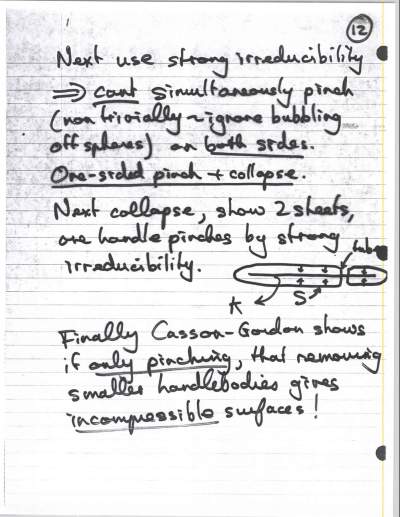 12
Next use strong irreducibility
⇒ can't simultaneously pinch
(non trivially ~ ignore bubbling
off spheres) on both sides.
One-sided pinch + collapse.
Next collapse, show 2 sheets,
one handle pinches by strong
irreducibility.
tube
K
S
Finally Casson-Gordon shows
if only pinching, that removing
smaller handlebodies gives
incompressible surfaces!